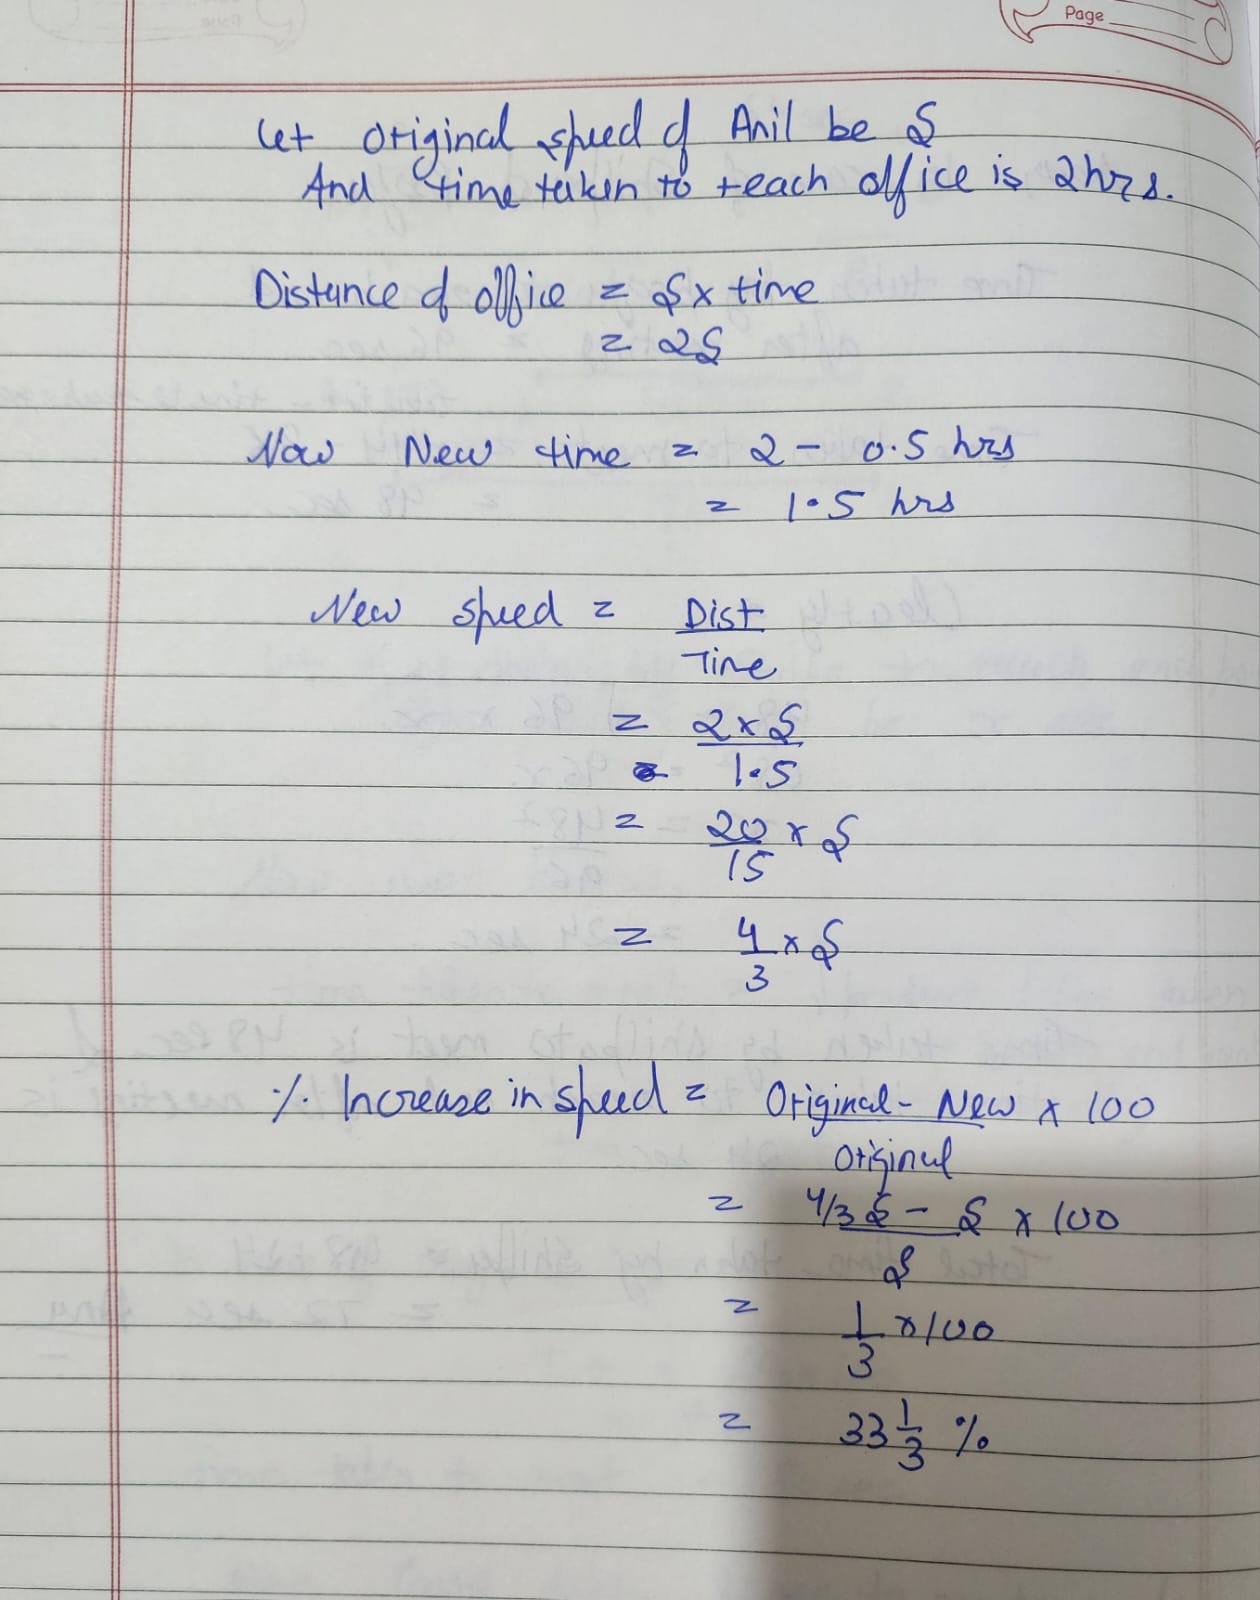 Page
Let Original speed of Anil be S
And time taken to reach office is 2hrs.
Distance of office = S x time
= 2S
Now New time = 2 - 0.5 hrs
= 1.5 hrs
New speed = Dist
Time
= 2 x S
= 1.5
= 20 x S
15
= 4 x S
3
% Increase in speed = Original - New x 100
Original
= 4/3 S - S x 100
S
= 1 x 100
3
= 33 1/3 %